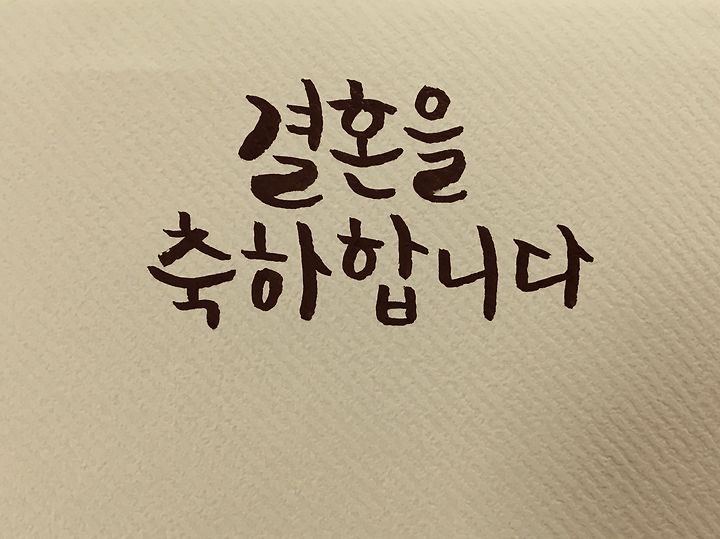 결혼을
축하합니다